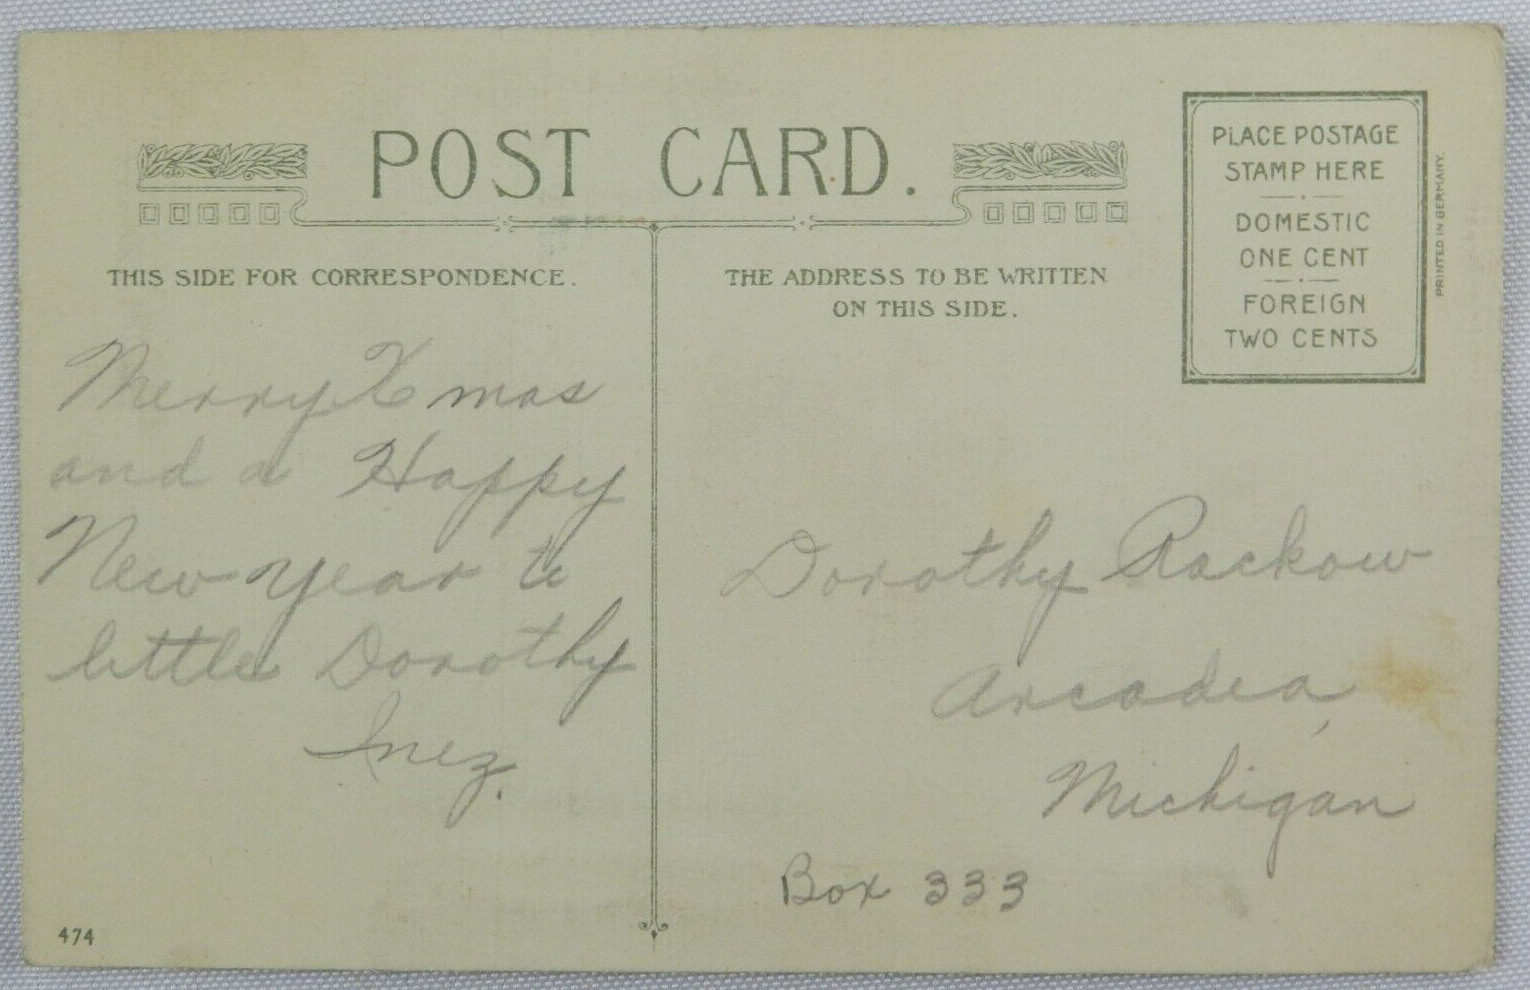 POST CARD.
PLACE POSTAGE
STAMP HERE
DOMESTIC
ONE CENT
FOREIGN
TWO CENTS
PRINTED IN GERMANY.
THIS SIDE FOR CORRESPONDENCE.
THE ADDRESS TO BE WRITTEN
ON THIS SIDE.
Merry Xmas
and a Happy
New year to
little Dorothy
Inez.
Dorothy Rackow
Arcadia,
Michigan
Box 333
474